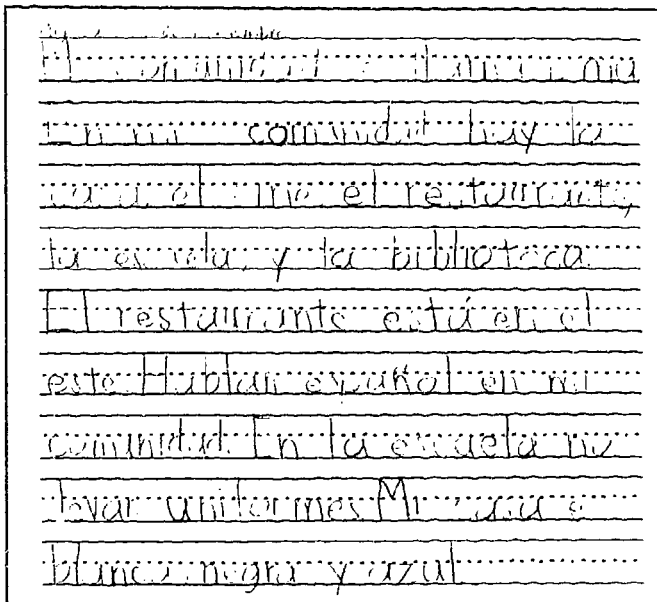 El comunidad
En mi comunidad hay la
casa el cine el restaurante,
la escuela, y la biblioteca.
El restaurante está en el
este. Hablan español en mi
comunidad. En la escuela no
levar uniformes. Mi casa e
blanca negra y azul